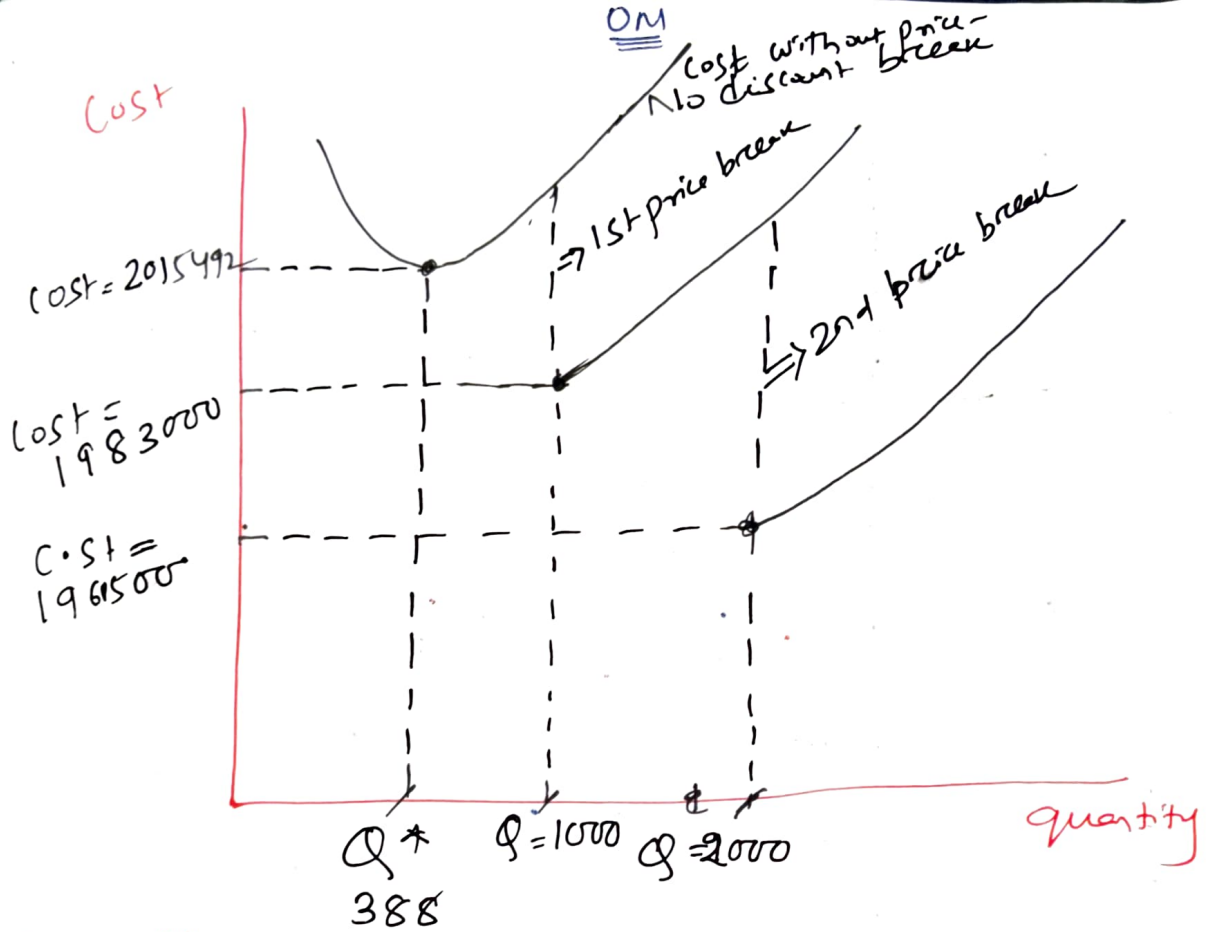 OM
Cost
Cost without price-
No discount break
=> 1st price break
=> 2nd price break
Cost = 2015492
Cost =
1983000
Cost =
1961500
Q*
388
Q=1000
Q=2000
quantity